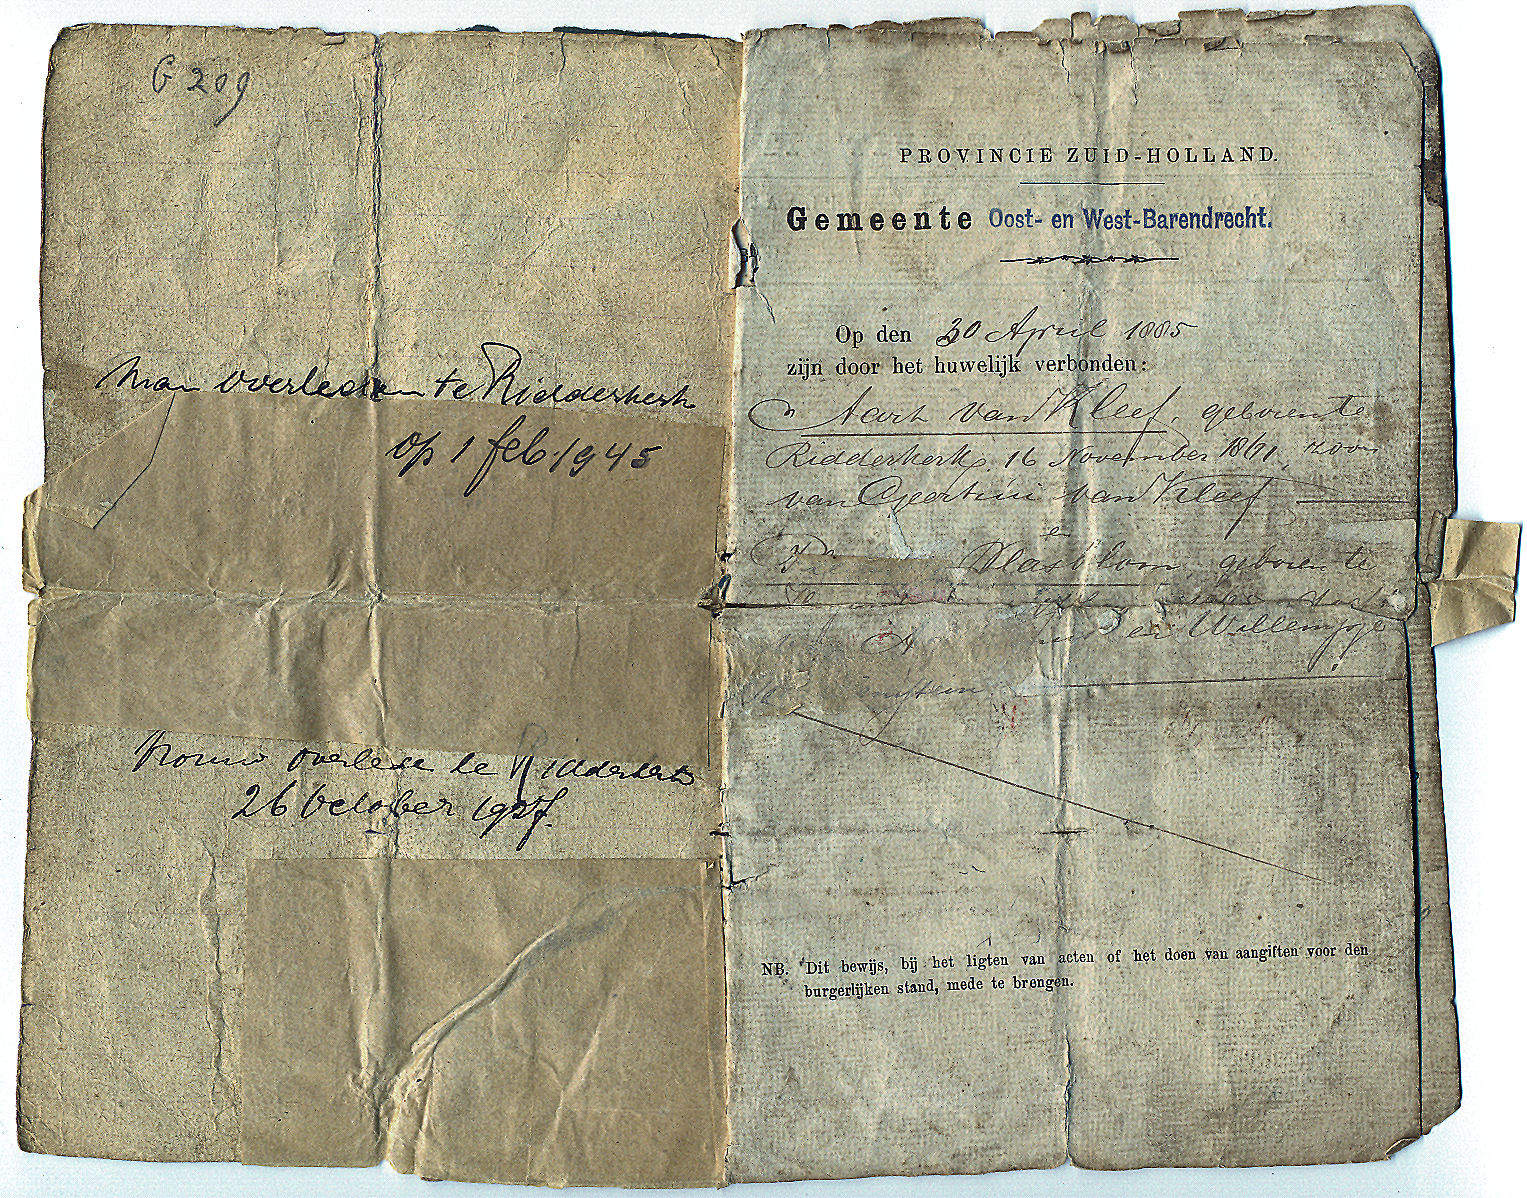 G 209
Man overleden te Ridderkerk
op 1 feb. 1945
Vrouw overleden te Ridderkerk
26 October 1927.
PROVINCIE ZUID-HOLLAND.
Gemeente Oost- en West-Barendrecht.
Op den 30 April 1885
zijn door het huwelijk verbonden:
Aart van Kleef, geboren te
Ridderkerk, 16 November 1861, zoon
van Geertrui van Kleef
en
Vlasblom geboren te
en Willempje
NB. Dit bewijs, bij het ligten van acten of het doen van aangiften voor den
burgerlijken stand, mede te brengen.